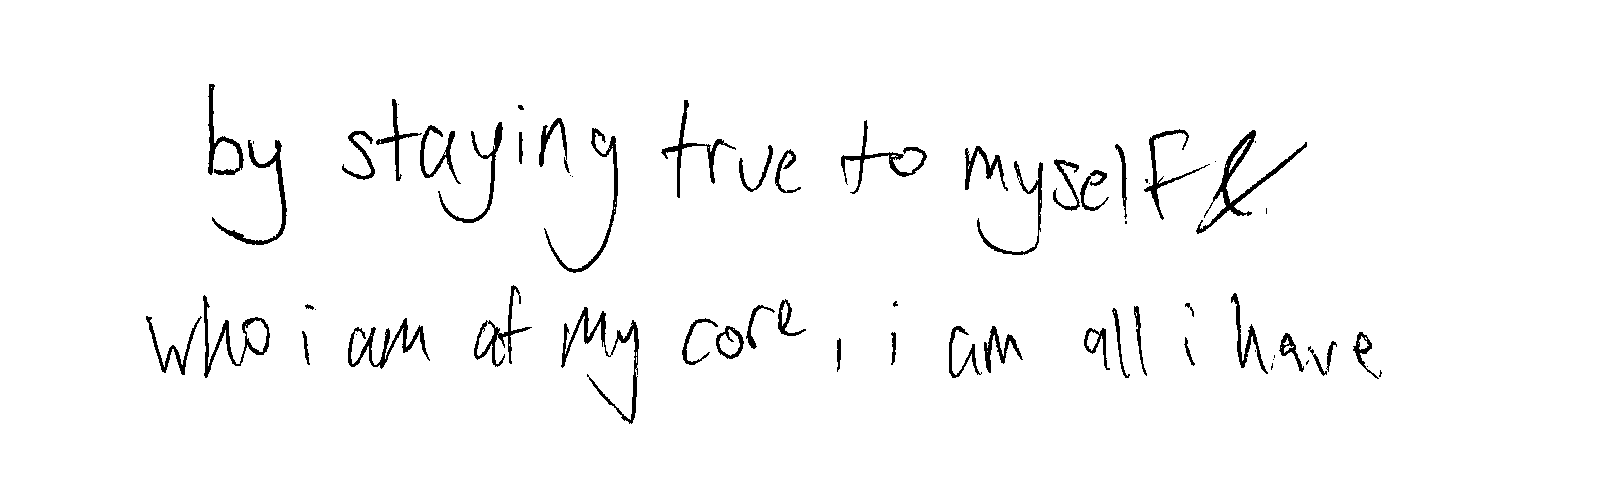 by staying true to myself &
who i am at my core, i am all i have